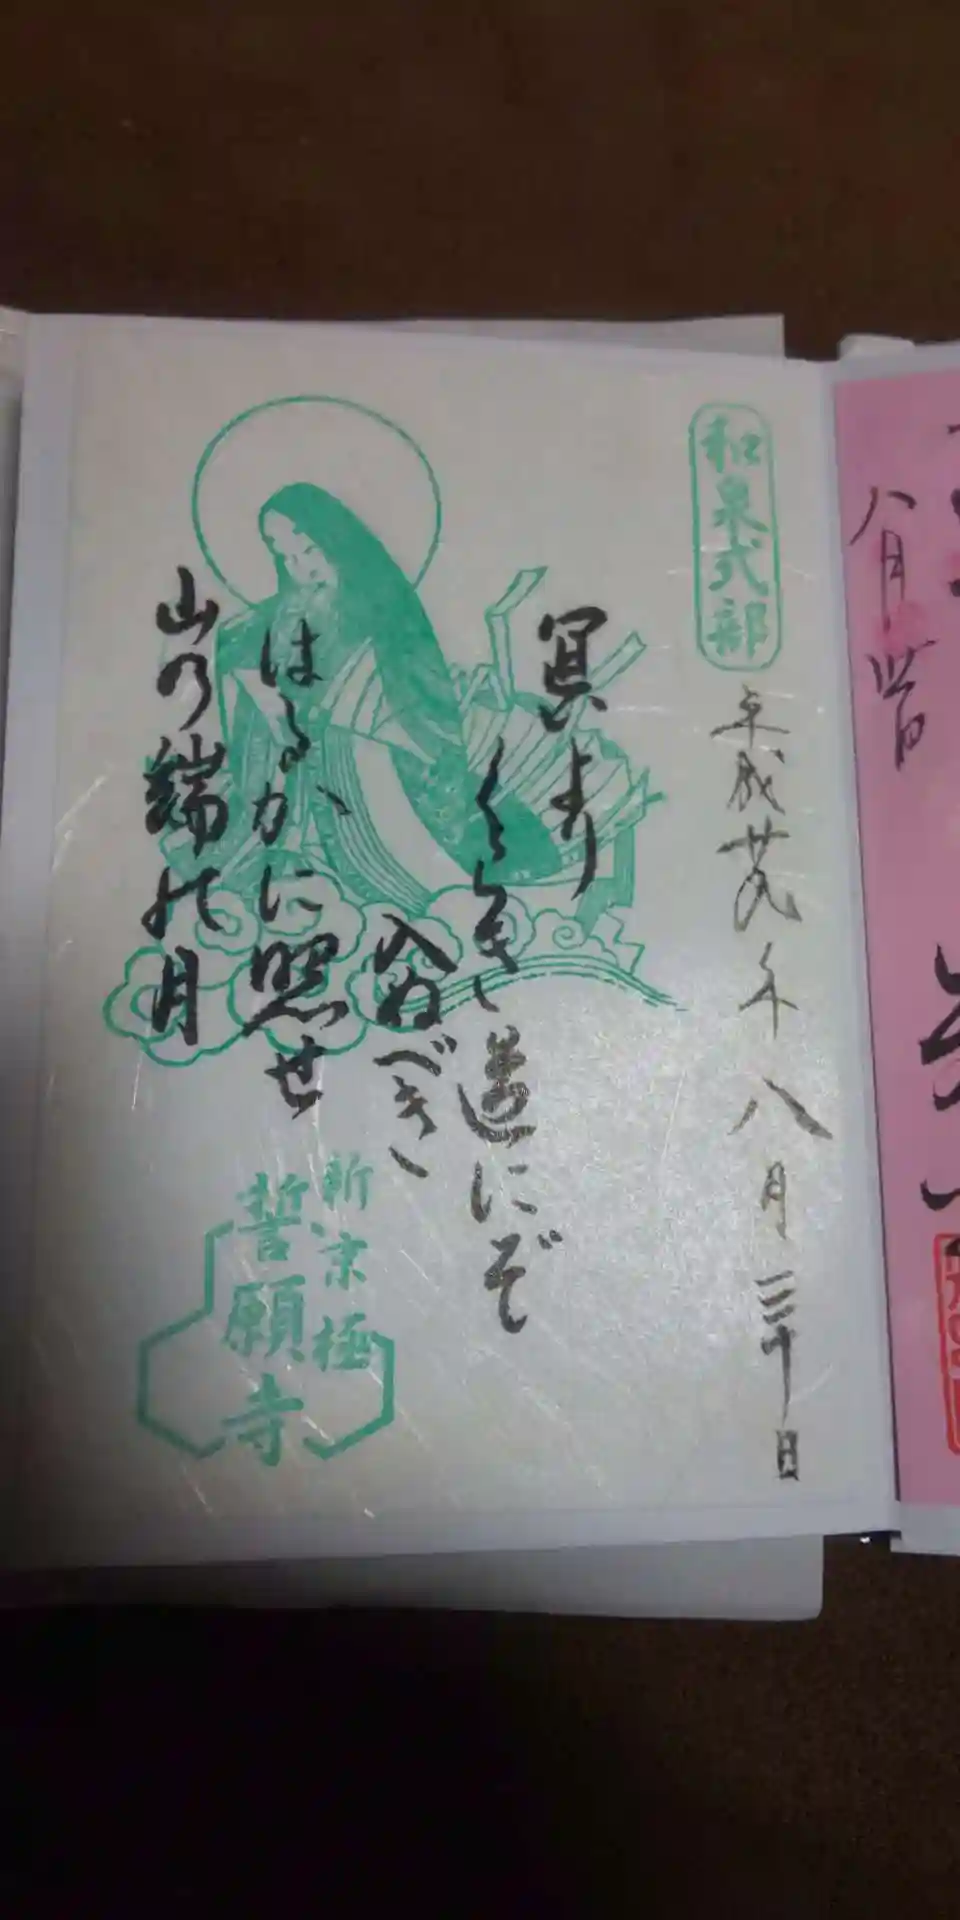 和泉式部
平成廿九年八月三十日
冥より
くらき道にぞ
入ぬべき
はるかに照せ
山の端の月
新京極
誓願寺
八月